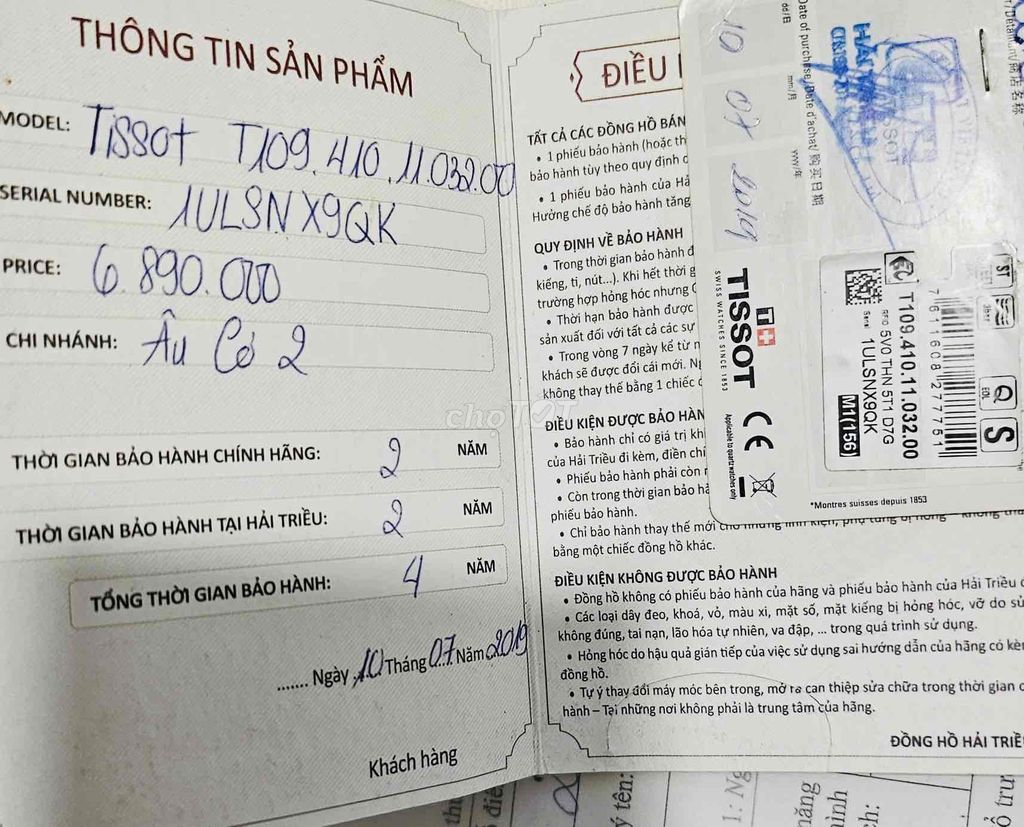 THÔNG TIN SẢN PHẨM
MODEL: Tissot T109.410.11.032.00
SERIAL NUMBER: 1ULSNX9QK
PRICE: 6.890.000
CHI NHÁNH: Âu Cơ 2
THỜI GIAN BẢO HÀNH CHÍNH HÃNG: 2 NĂM
THỜI GIAN BẢO HÀNH TẠI HẢI TRIỀU: 2 NĂM
TỔNG THỜI GIAN BẢO HÀNH: 4 NĂM
....... Ngày 10 Tháng 07 Năm 2019
Khách hàng
choTỐT
ĐIỀU
TẤT CẢ CÁC ĐỒNG HỒ BÁN
• 1 phiếu bảo hành (hoặc th
bảo hành tùy theo quy định c
• 1 phiếu bảo hành của Hả
Hưởng chế độ bảo hành tăng
QUY ĐỊNH VỀ BẢO HÀNH
• Trong thời gian bảo hành đ
kiếng, ti, nút...). Khi hết thời g
trường hợp hỏng hóc nhưng
• Thời hạn bảo hành được
sản xuất đối với tất cả các sự
• Trong vòng 7 ngày kể từ n
khách sẽ được đổi cái mới. Ng
không thay thế bằng 1 chiếc
ĐIỀU KIỆN ĐƯỢC BẢO HÀN
• Bảo hành chỉ có giá trị kh
của Hải Triều đi kèm, điền chí
• Phiếu bảo hành phải còn
• Còn trong thời gian bảo hà
phiếu bảo hành.
• Chỉ bảo hành thay thế mới cho những linh kiện, phụ tùng bị hỏng
bằng một chiếc đồng hồ khác.
ĐIỀU KIỆN KHÔNG ĐƯỢC BẢO HÀNH
• Đồng hồ không có phiếu bảo hành của hãng và phiếu bảo hành của Hải Triều
• Các loại dây đeo, khoá, vỏ, màu xi, mặt số, mặt kiếng bị hỏng hóc, vỡ do sử
không đúng, tai nạn, lão hóa tự nhiên, va đập, ... trong quá trình sử dụng.
• Hỏng hóc do hậu quả gián tiếp của việc sử dụng sai hướng dẫn của hãng có kè
đồng hồ.
• Tự ý thay đổi máy móc bên trong, mở ra can thiệp sửa chữa trong thời gian
hành – Tại những nơi không phải là trung tâm của hãng.
ĐỒNG HỒ HẢI TRIỀU
Date of purchase/Date d'achat/购买日期
dd/日 mm/月 yyyy/年
10 07 2019
TISSOT
SWISS WATCHES SINCE 1853
CE
Applicable to quartz watches only
T109.410.11.032.00
RFO 5V0 THN 5T1 D7G
Serial 1ULSNX9QK
M1(156)
7611608277751
ST
EOL
S
*Montres suisses depuis 1853
ý tên: